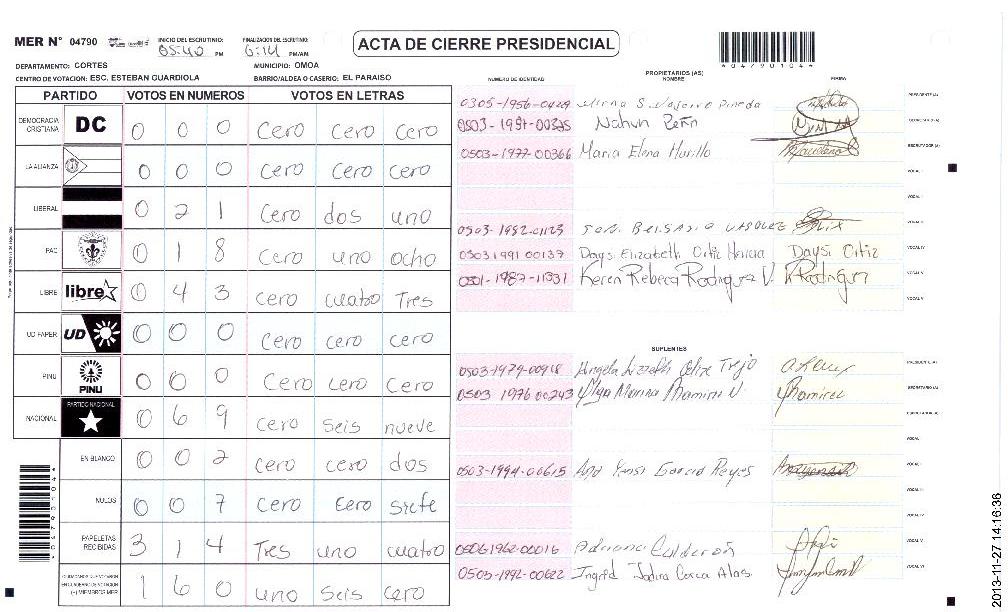 MER N° 04790 INICIO DEL ESCRUTINIO: 05:40 PM FINALIZACION DEL ESCRUTINIO: 6:14 PM/AM
ACTA DE CIERRE PRESIDENCIAL
DEPARTAMENTO: CORTES MUNICIPIO: OMOA
CENTRO DE VOTACION: ESC. ESTEBAN GUARDIOLA BARRIO/ALDEA O CASERIO: EL PARAISO
PARTIDO VOTOS EN NUMEROS VOTOS EN LETRAS
DEMOCRACIA CRISTIANA DC 0 0 0 Cero Cero Cero
LA ALIANZA 0 0 0 Cero Cero Cero
LIBERAL 0 2 1 Cero dos uno
PAC 0 1 8 Cero uno ocho
LIBRE libre 0 4 3 cero cuatro Tres
UD FAPER UD 0 0 0 Cero cero cero
PINU PINU 0 0 0 Cero cero Cero
NACIONAL PARTIDO NACIONAL 0 6 9 cero Seis nueve
EN BLANCO 0 0 2 cero cero dos
NULOS 0 0 7 cero cero siete
PAPELETAS RECIBIDAS 3 1 4 Tres uno cuatro
CIUDADANOS QUE VOTARON EN CUADERNO DE VOTACION (+) MIEMBROS MER 1 6 0 uno Seis cero
NUMERO DE IDENTIDAD PROPIETARIOS (AS) NOMBRE FIRMA
PRESIDENTE (A)
0305-1956-0429 Mirna S. Navarro Pineda
SECRETARIO (A)
0503-1951-00325 Nahun Peña
ESCRUTADOR (A)
0503-1977-00366 Maria Elena Murillo
VOCAL I
VOCAL II
VOCAL III
0503-1952-01123 BELSARIO VASQUEZ
VOCAL IV
05031991 00137 Daysi Elizabeth Ortiz Daysi Ortiz
VOCAL V
0301-1987-11331 Keren Rebeca Rodriguez V. KRodriguez
SUPLENTES
PRESIDENTE (A)
0503-1979-00918 Angela Lizzeth Trejo
SECRETARIO (A)
0503 1976 00243 Olga Marina Ramirez V. Ramirez
ESCRUTADOR (A)
VOCAL I
0503-1994-00615 Ana Yensi Garcia Reyes
0506196200016 Adriana Calderon
0503-1992-00622 Ingrid Alas
4047901044
2013-11-27 14:16:36